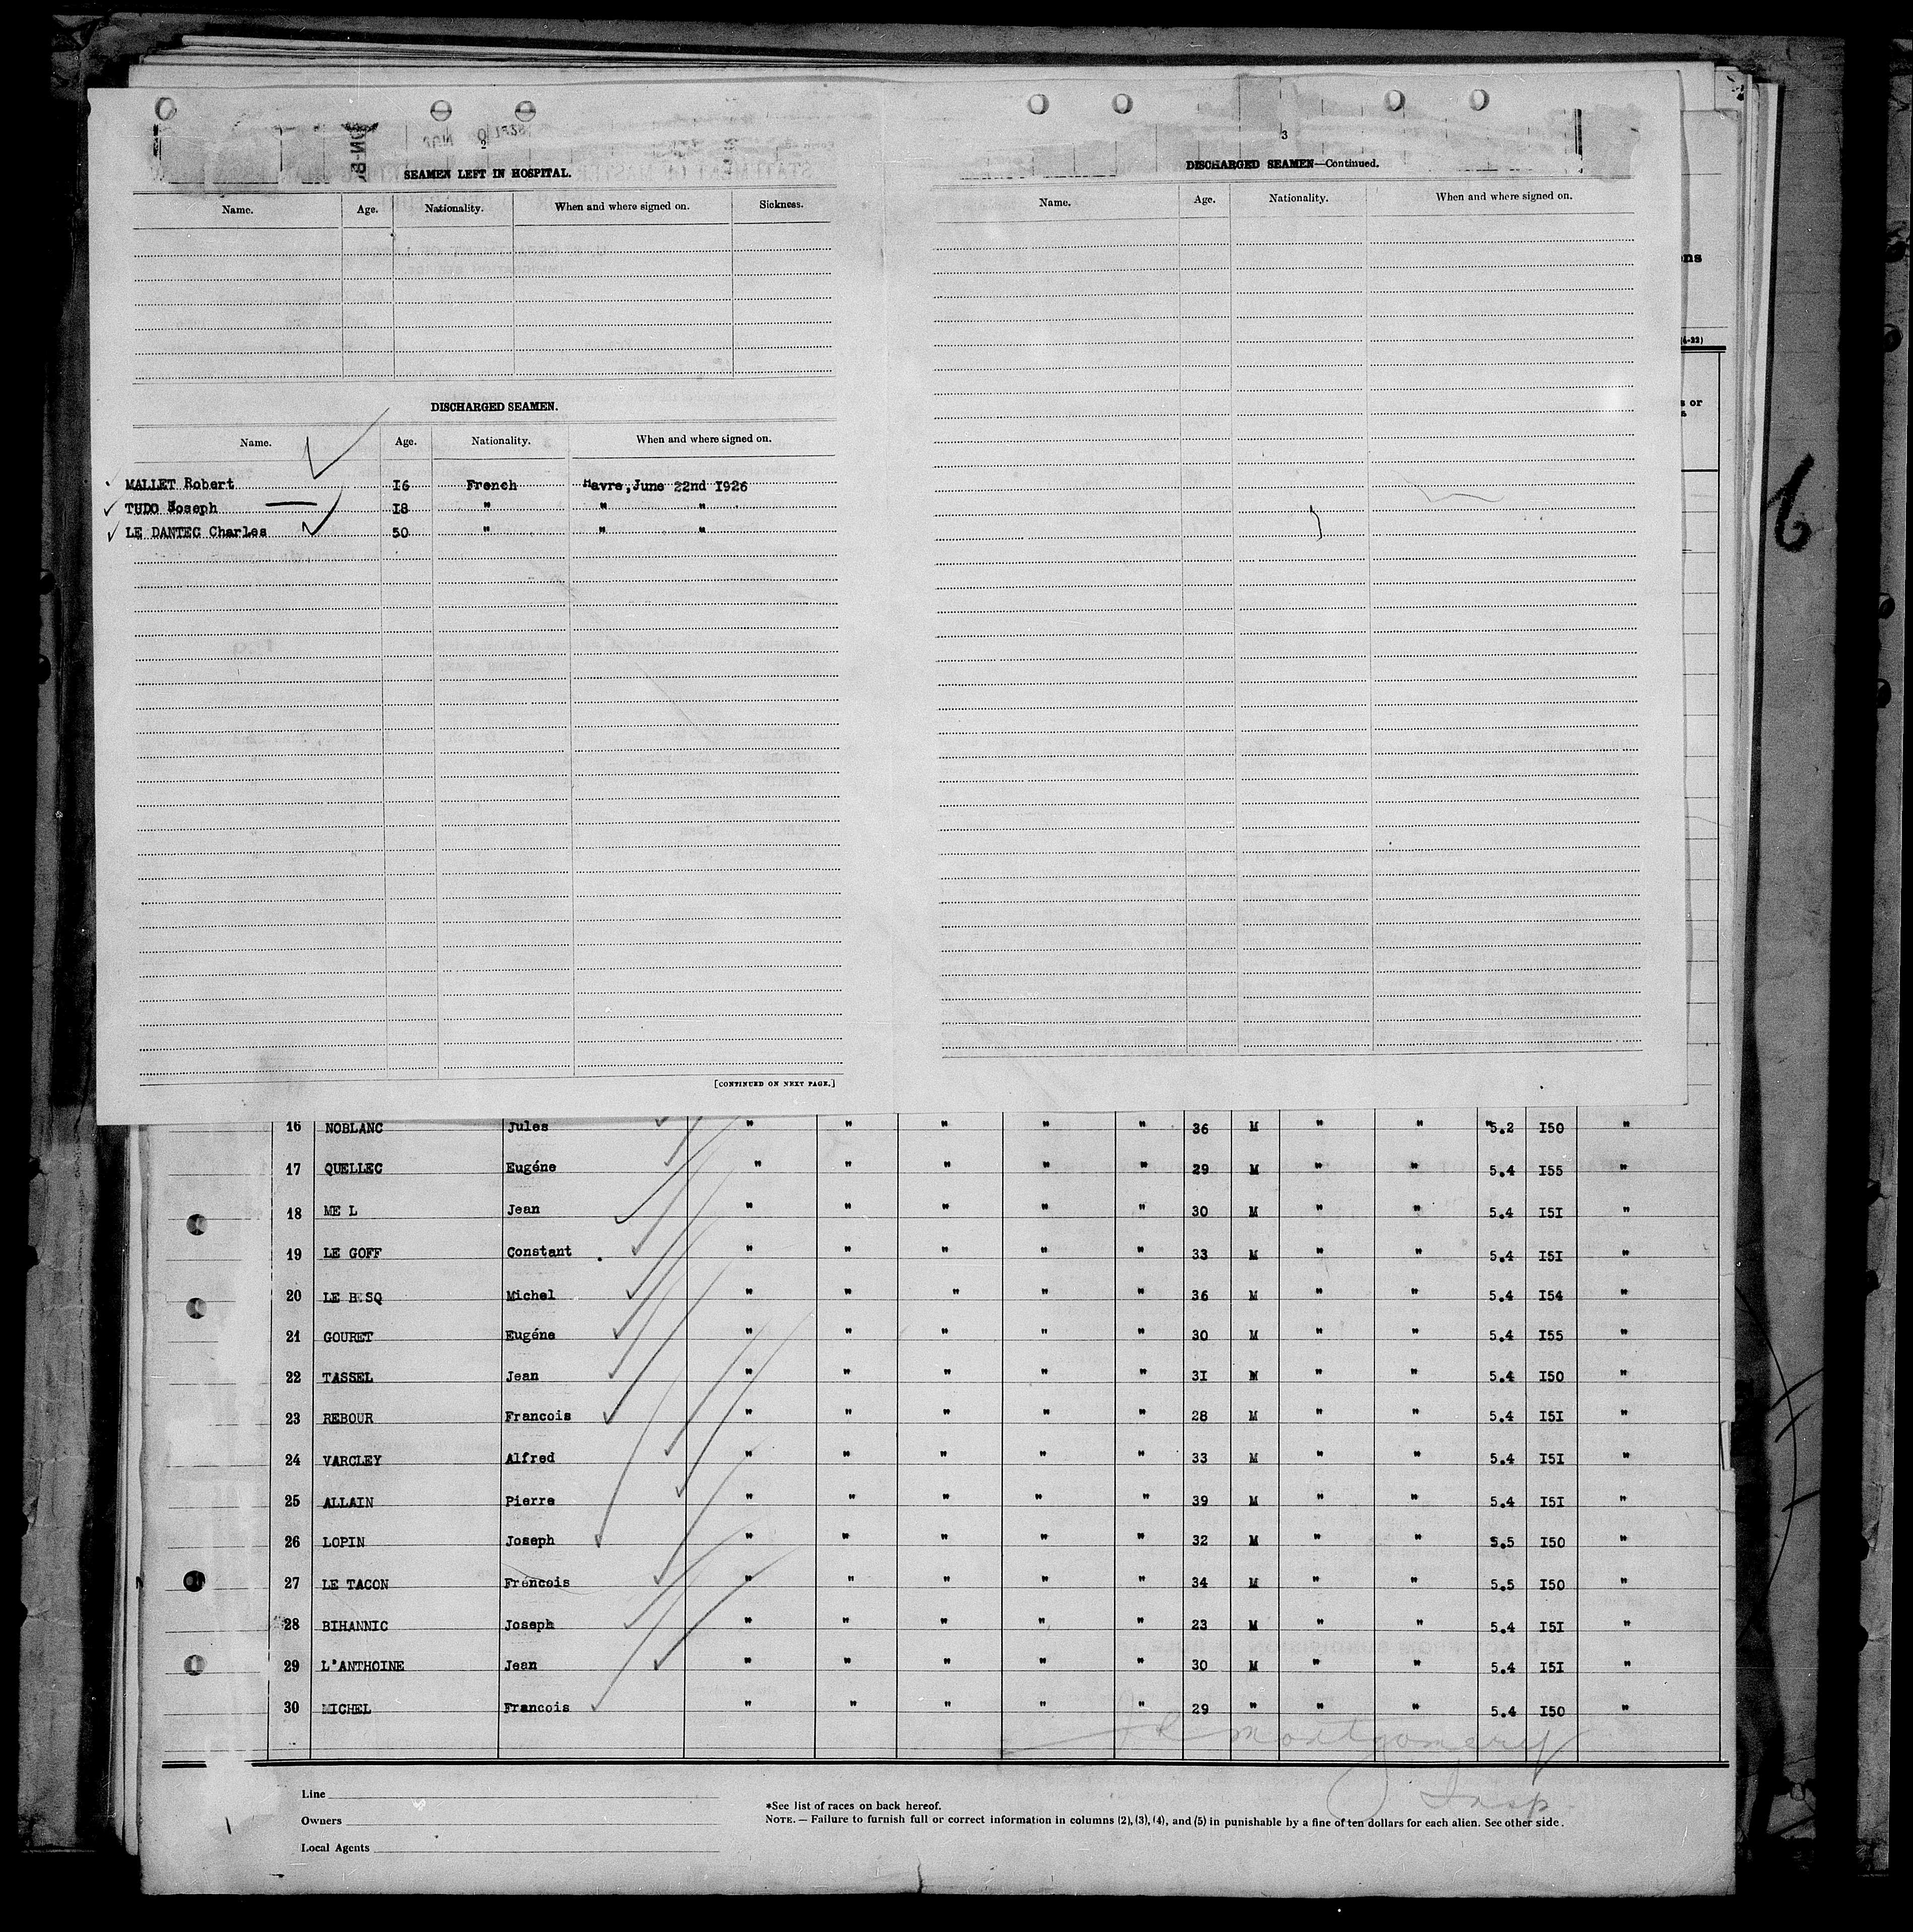 2
SEAMEN LEFT IN HOSPITAL.
Name. Age. Nationality. When and where signed on. Sickness.
DISCHARGED SEAMEN.
Name. Age. Nationality. When and where signed on.
MALLET Robert 16 French Havre, June 22nd 1926
TUDO Joseph 18 " " "
LE DANTEC Charles 50 " " "
[CONTINUED ON NEXT PAGE.]
3
DISCHARGED SEAMEN—Continued.
Name. Age. Nationality. When and where signed on.
ons
(4-22)
s or
6
16 NOBLANC Jules " " " " " 36 M " " "5.2 150 "
17 QUELLEC Eugéne " " " " " 29 M " " 5.4 155 "
18 ME L Jean " " " " " 30 M " " 5.4 151 "
19 LE GOFF Constant " " " " " 33 M " " 5.4 151 "
20 LE B SQ Michel " " " " " 36 M " " 5.4 154 "
21 GOURET Eugéne " " " " " 30 M " " 5.4 155 "
22 TASSEL Jean " " " " " 31 M " " 5.4 150 "
23 REBOUR Francois " " " " " 28 M " " 5.4 151 "
24 VARCLEY Alfred " " " " " 33 M " " 5.4 151 "
25 ALLAIN Pierre " " " " " 39 M " " 5.4 151 "
26 LOPIN Joseph " " " " " 32 M " " 5.5 150 "
27 LE TACON Francois " " " " " 34 M " " 5.5 150 "
28 BIHANNIC Joseph " " " " " 23 M " " 5.4 151 "
29 L'ANTHOINE Jean " " " " " 30 M " " 5.4 151 "
30 MICHEL Francois " " " " " 29 " " " 5.4 150 "
J R Montgomery
Insp
Line
Owners
Local Agents
*See list of races on back hereof.
NOTE.—Failure to furnish full or correct information in columns (2), (3), (4), and (5) in punishable by a fine of ten dollars for each alien. See other side.